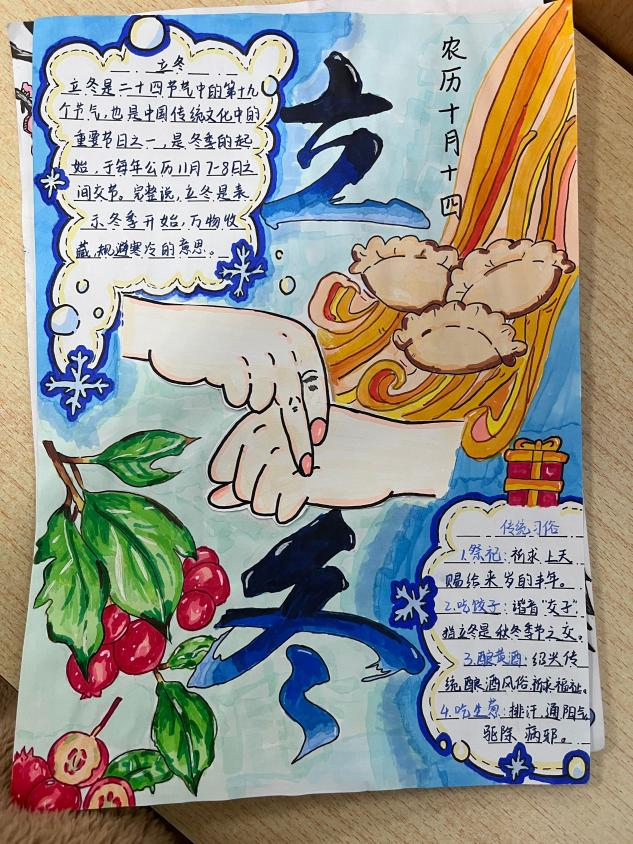 立冬
立冬是二十四节气中的第十九
个节气，也是中国传统文化中的
重要节日之一，是冬季的起
始，于每年公历11月7-8日之
间交节。完整说，立冬是表
示冬季开始，万物收
藏，规避寒冷的意思。
立
农历十月十四
冬
传统习俗
1.祭祀：祈求上天
赐给来岁的丰年。
2.吃饺子：谐音"交子"
指立冬是秋冬季节之交。
3.酿黄酒：绍兴传
统酿酒风俗，祈求福祉。
4.吃生葱：排汗，通阳气，
驱除病邪。